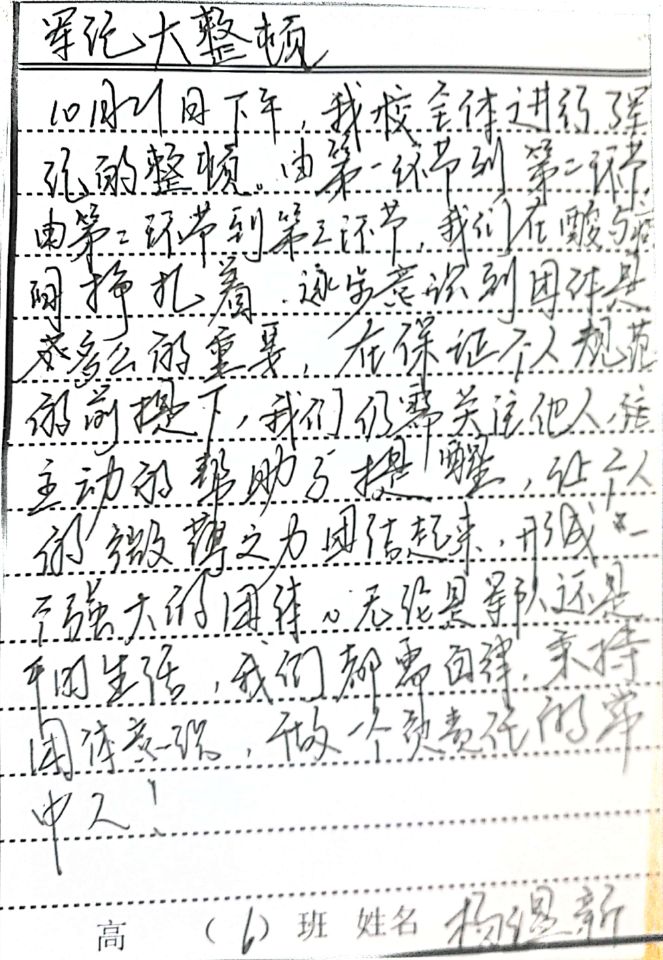 军纪大整顿
10月21日下午，我校全体进行军
纪的整顿。由第一环节到第二环节，
由第二环节到第三环节，我们在酸与疼
间挣扎着，逐步意识到团体是
多么的重要，在保证个人规范
的前提下，我们仍需关注他人，
主动的帮助与提醒，让个人
的微薄之力团结起来，形成一
个强大的团体。无论是军队还是
平时生活，我们都需自律，秉持
团体意识，做一个负责任的掌
中人！
高 （6）班 姓名 杨温新